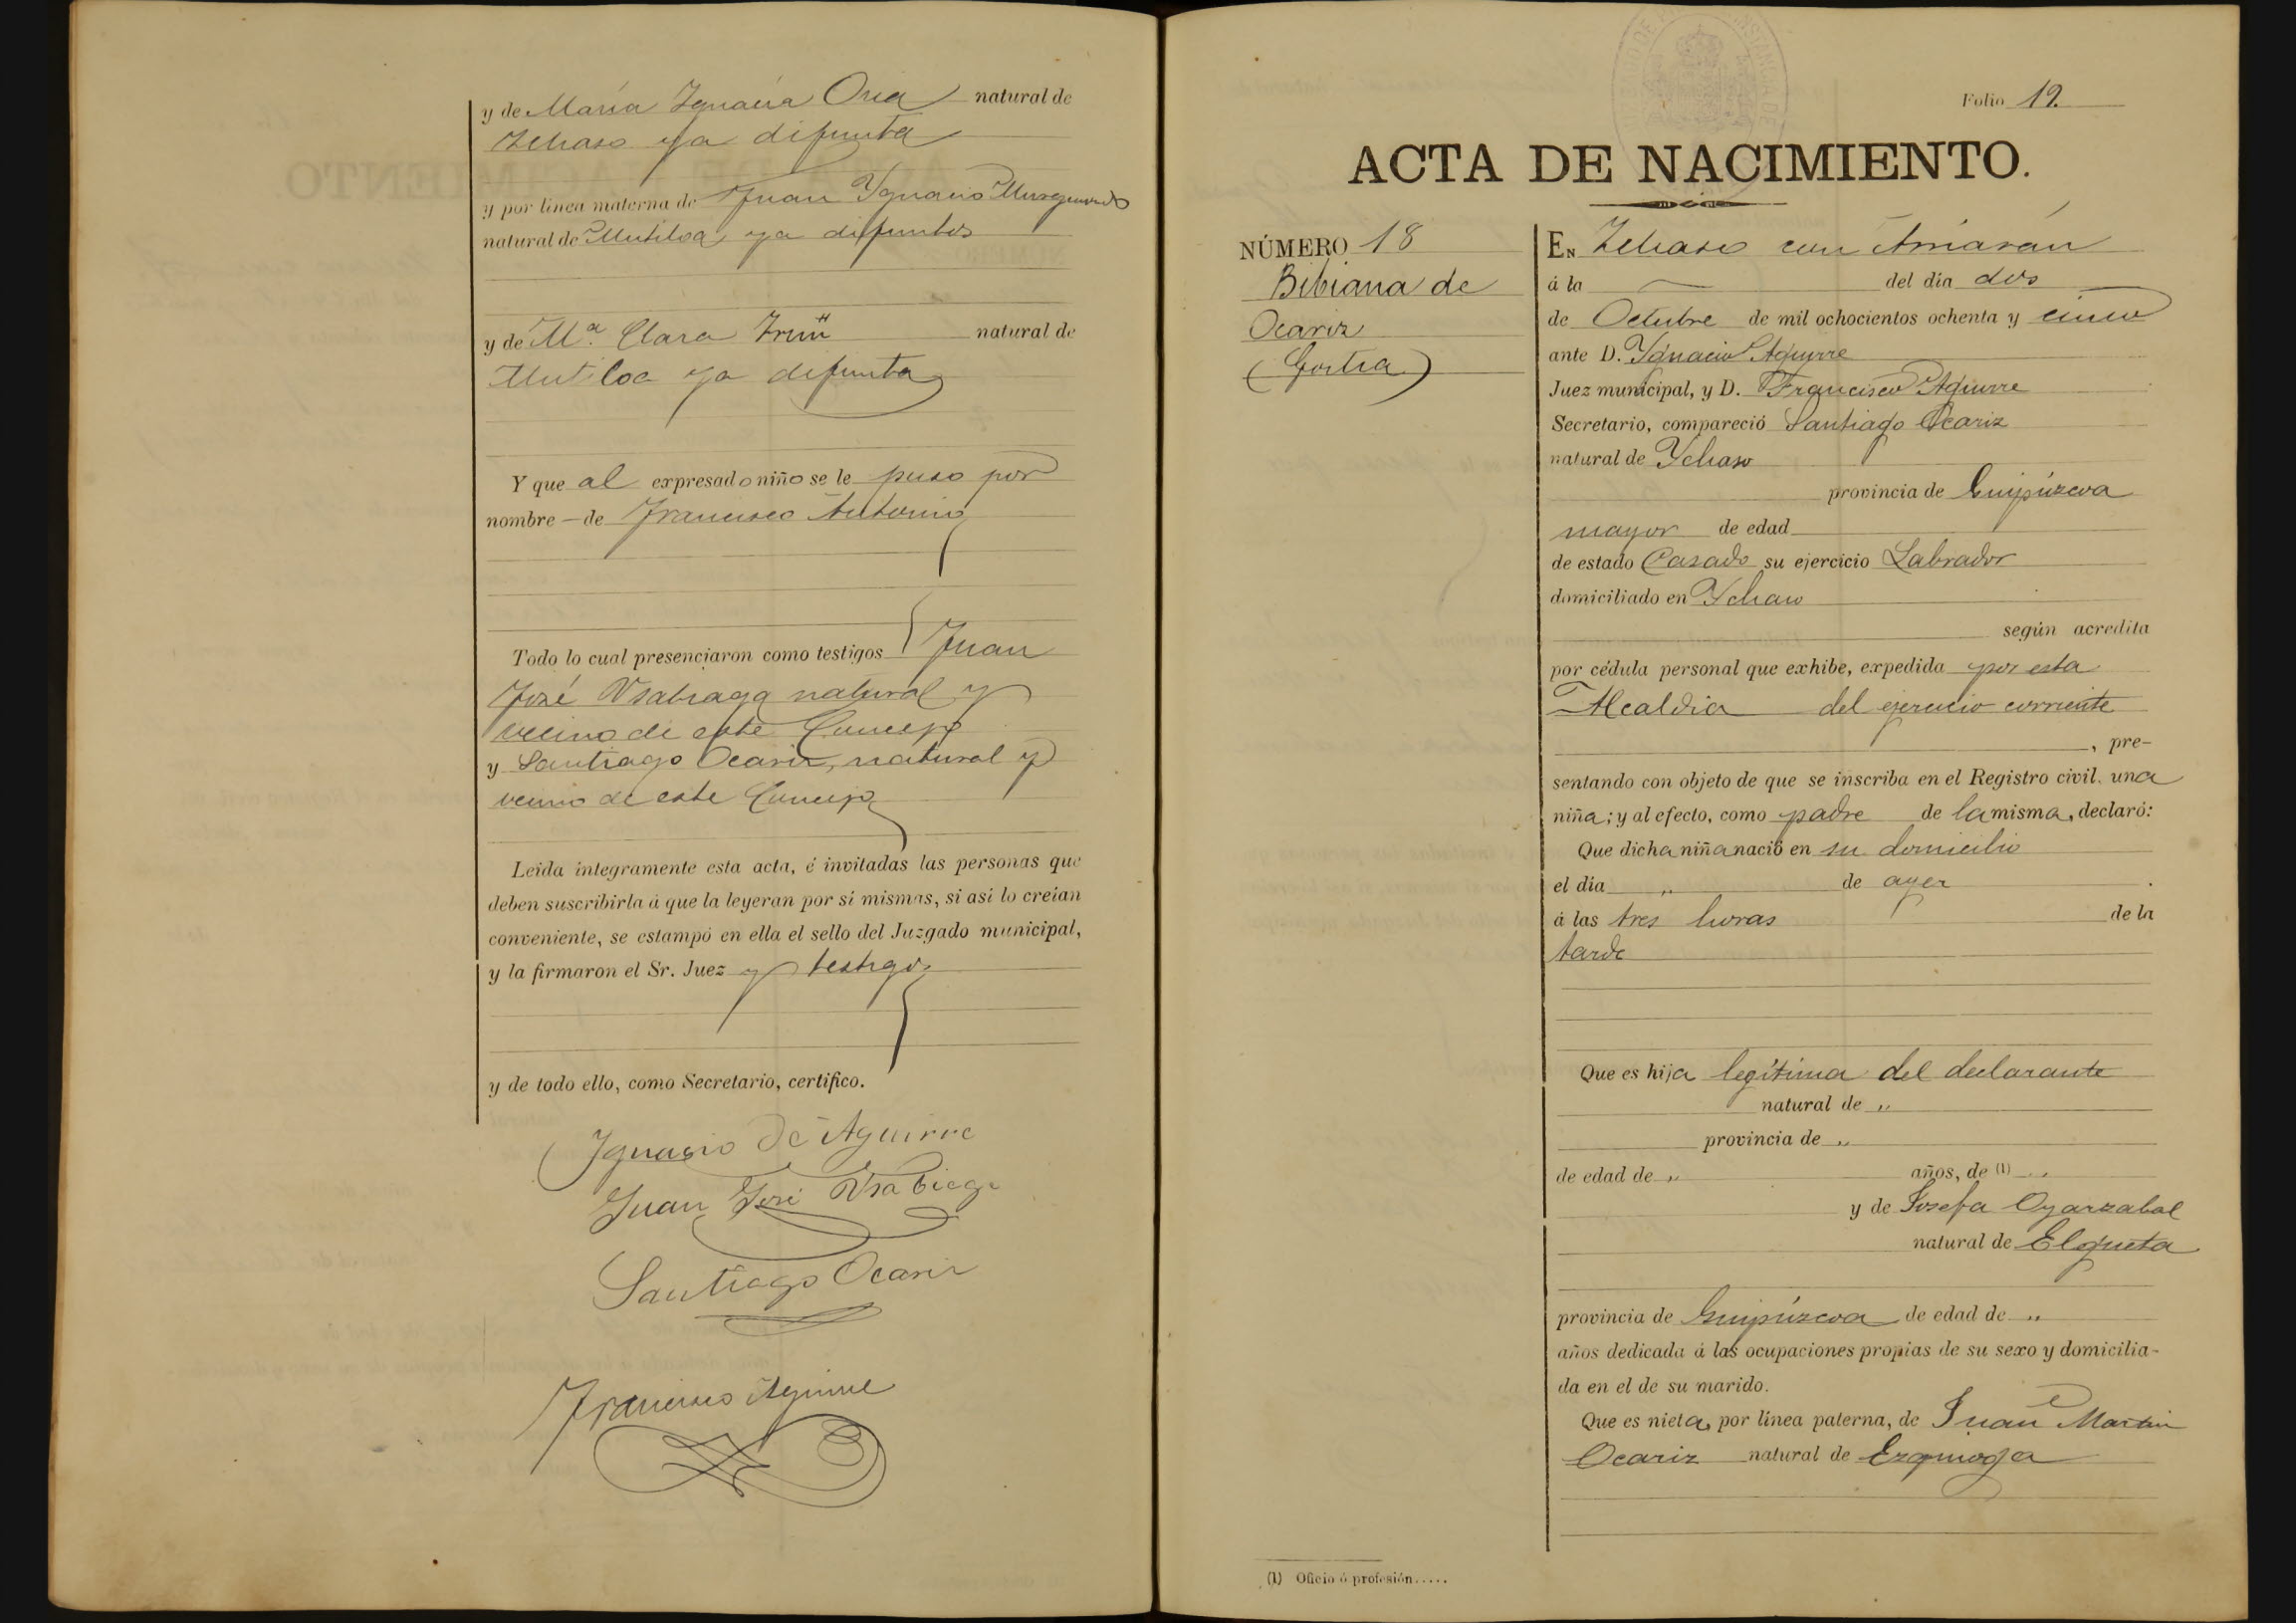 y de María Ignacia Oria natural de
Ichaso ya difunta
y por línea materna de Juan Ygnacio
natural de Mutiloa, ya difuntos
y de Mª. Clara natural de
Mutiloa ya difunta
Y que al expresado niño se le puso por
nombre — de Francisco Antonio
Todo lo cual presenciaron como testigos Juan
José Usabiaga natural y
vecino de este Concejo
y Santiago Ocariz, natural y
vecino de este Concejo
Leida íntegramente esta acta, é invitadas las personas que
deben suscribirla á que la leyeran por sí mismas, si así lo creían
conveniente, se estampó en ella el sello del Juzgado municipal,
y la firmaron el Sr. Juez y testigos
y de todo ello, como Secretario, certifico.
Ignacio de Aguirre
Juan José Usabiaga
Santiago Ocariz
Francisco Aguirre
Folio 19.
ACTA DE NACIMIENTO.
NÚMERO 18
Bibiana de
Ocariz
En Ichaso con Arriarán
á la del día dos
de Octubre de mil ochocientos ochenta y cinco
ante D. Ygnacio Aguirre
Juez municipal, y D. Francisco Aguirre
Secretario, compareció Santiago Ocariz
natural de Ychaso
provincia de Guipúzcoa
mayor de edad
de estado Casado su ejercicio Labrador
domiciliado en Ychaso
según acredita
por cédula personal que exhibe, expedida por esta
Alcaldia del ejercicio corriente
, pre-
sentando con objeto de que se inscriba en el Registro civil, una
niña; y al efecto, como padre de la misma, declaró:
Que dicha niña nació en su domicilio
el día „ de ayer
á las tres horas de la
tarde
Que es hija legítima del declarante
natural de „
provincia de „
de edad de „ años, de (1) „
y de Josefa Oyarzabal
natural de Elgueta
provincia de Guipúzcoa de edad de „
años dedicada á las ocupaciones propias de su sexo y domicilia-
da en el de su marido.
Que es nieta, por línea paterna, de Juan Martin
Ocariz natural de Ezquioga
(1) Oficio ó profesión.....